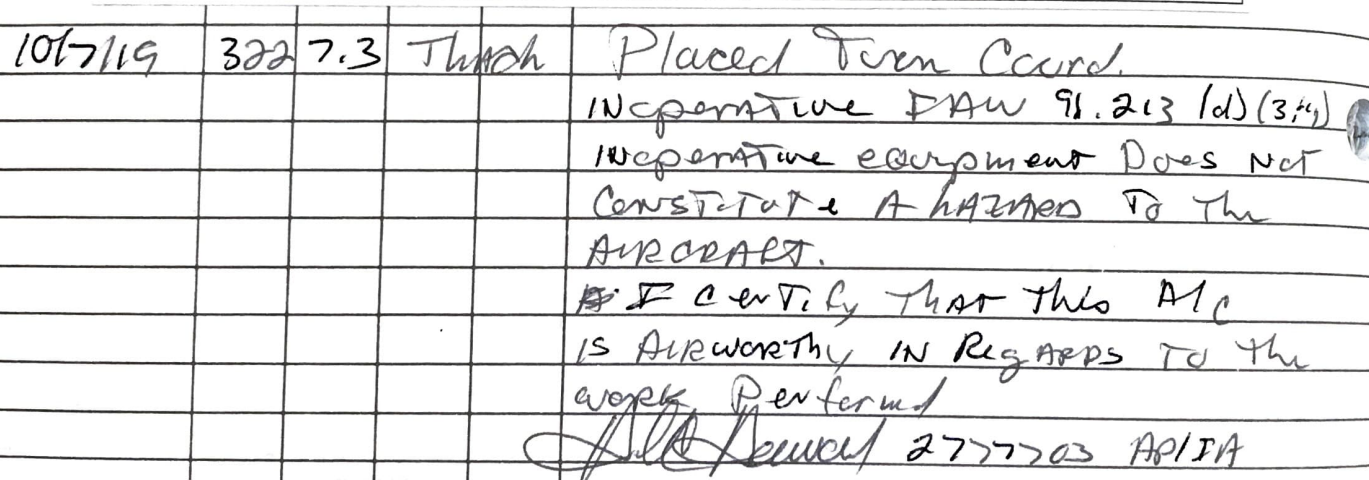 10/7/19 322 7.3 Tach Placed Turn Coord.
INoperative IAW 91.213 (d)(3,4)
INoperative equipment Does Not
CONSTITUTE A hAZARD To The
AIRCRAFT.
I certify That this A/C
IS AIRWORTHy IN RegARDS TO the
work Performed
2777703 AP/IA